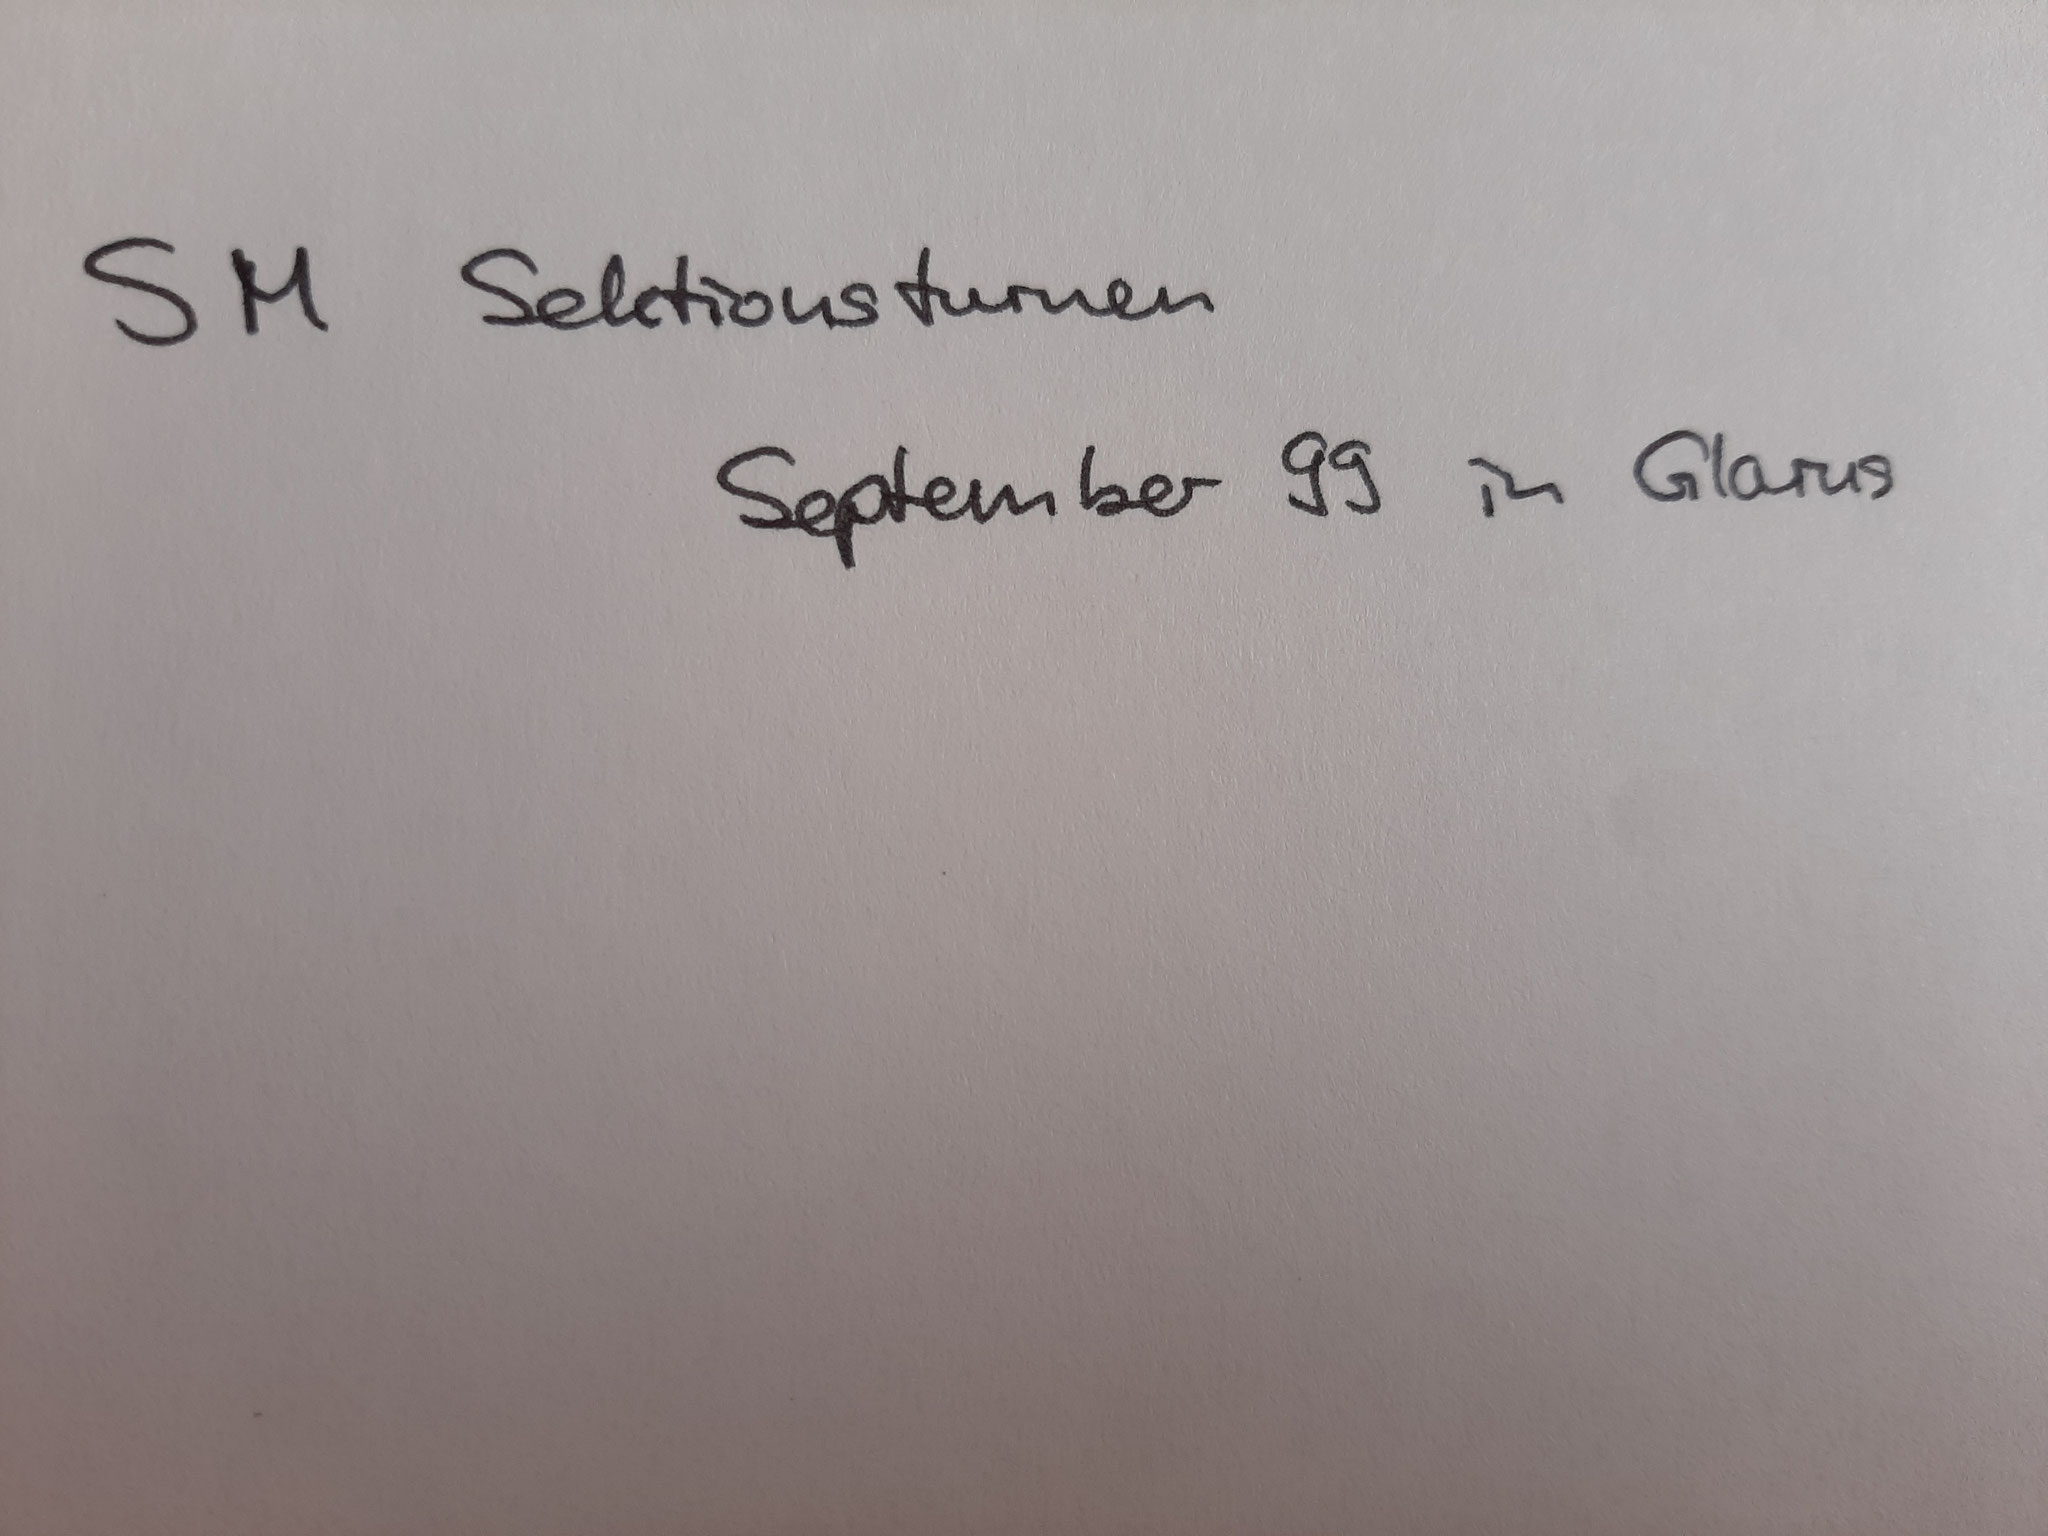 SM Sektionsturnen
September 99 in Glarus